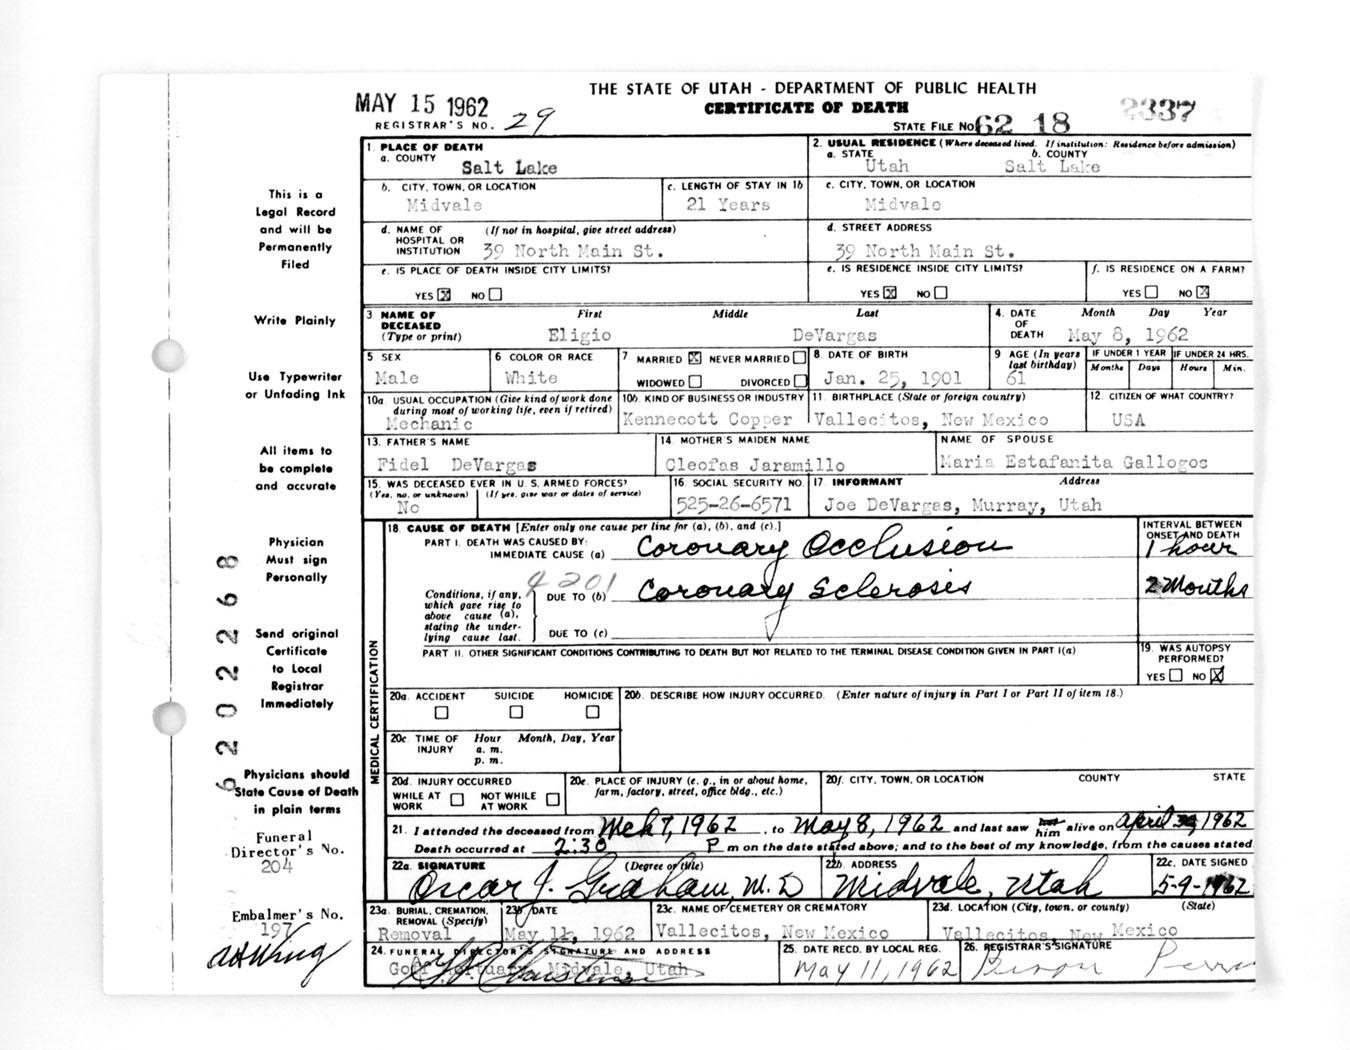 THE STATE OF UTAH - DEPARTMENT OF PUBLIC HEALTH
MAY 15 1962
CERTIFICATE OF DEATH
2337
REGISTRAR'S NO. 29
STATE FILE NO. 62 18
1. PLACE OF DEATH
a. COUNTY
Salt Lake
2. USUAL RESIDENCE (Where deceased lived. If institution: Residence before admission)
a. STATE b. COUNTY
Utah Salt Lake
b. CITY, TOWN, OR LOCATION
Midvale
c. LENGTH OF STAY IN 1b
21 Years
c. CITY, TOWN, OR LOCATION
Midvale
d. NAME OF (If not in hospital, give street address)
HOSPITAL OR
INSTITUTION 39 North Main St.
d. STREET ADDRESS
39 North Main St.
e. IS PLACE OF DEATH INSIDE CITY LIMITS?
YES ☒ NO ☐
e. IS RESIDENCE INSIDE CITY LIMITS?
YES ☒ NO ☐
f. IS RESIDENCE ON A FARM?
YES ☐ NO ☒
3 NAME OF DECEASED (Type or print)
First Middle Last
Eligio DeVargas
4. DATE OF DEATH
Month Day Year
May 8, 1962
5 SEX
Male
6 COLOR OR RACE
White
7 MARRIED ☒ NEVER MARRIED ☐
WIDOWED ☐ DIVORCED ☐
8. DATE OF BIRTH
Jan. 25, 1901
9 AGE (In years last birthday)
61
IF UNDER 1 YEAR
Months Days
IF UNDER 24 HRS.
Hours Min.
10a. USUAL OCCUPATION (Give kind of work done during most of working life, even if retired)
Mechanic
10b. KIND OF BUSINESS OR INDUSTRY
Kennecott Copper
11. BIRTHPLACE (State or foreign country)
Vallecitos, New Mexico
12. CITIZEN OF WHAT COUNTRY?
USA
13. FATHER'S NAME
Fidel DeVargas
14. MOTHER'S MAIDEN NAME
Cleofas Jaramillo
NAME OF SPOUSE
Maria Estafanita Gallogos
15. WAS DECEASED EVER IN U. S. ARMED FORCES?
(Yes, no, or unknown) (If yes, give war or dates of service)
No
16. SOCIAL SECURITY NO.
525-26-6571
17. INFORMANT Address
Joe DeVargas, Murray, Utah
MEDICAL CERTIFICATION
18. CAUSE OF DEATH [Enter only one cause per line for (a), (b), and (c).]
INTERVAL BETWEEN ONSET AND DEATH
PART I. DEATH WAS CAUSED BY:
IMMEDIATE CAUSE (a) Coronary Occlusion 1 hour
4201
Conditions, if any, which gave rise to above cause (a), stating the underlying cause last.
DUE TO (b) Coronary Sclerosis 2 Months
DUE TO (c)
PART II. OTHER SIGNIFICANT CONDITIONS CONTRIBUTING TO DEATH BUT NOT RELATED TO THE TERMINAL DISEASE CONDITION GIVEN IN PART I(a)
19. WAS AUTOPSY PERFORMED?
YES ☐ NO ☒
20a. ACCIDENT SUICIDE HOMICIDE
☐ ☐ ☐
20b. DESCRIBE HOW INJURY OCCURRED. (Enter nature of injury in Part I or Part II of item 18.)
20c. TIME OF INJURY
Hour Month, Day, Year
a. m.
p. m.
20d. INJURY OCCURRED
WHILE AT WORK ☐ NOT WHILE AT WORK ☐
20e. PLACE OF INJURY (e. g., in or about home, farm, factory, street, office bldg., etc.)
20f. CITY, TOWN, OR LOCATION COUNTY STATE
21. I attended the deceased from Mch 7, 1962, to May 8, 1962 and last saw him alive on April 30, 1962
Death occurred at 2:30 P m on the date stated above; and to the best of my knowledge, from the causes stated
22a. SIGNATURE (Degree or title)
Oscar J. Graham, M.D
22b. ADDRESS
Midvale, Utah
22c. DATE SIGNED
5-9-1962
23a. BURIAL, CREMATION, REMOVAL (Specify)
Removal
23b. DATE
May 11, 1962
23c. NAME OF CEMETERY OR CREMATORY
Vallecitos, New Mexico
23d. LOCATION (City, town, or county) (State)
Vallecitos, New Mexico
24. FUNERAL DIRECTOR'S SIGNATURE AND ADDRESS
Goff Mortuary, Midvale, Utah
25. DATE RECD. BY LOCAL REG.
May 11, 1962
26. REGISTRAR'S SIGNATURE
This is a
Legal Record
and will be
Permanently
Filed
Write Plainly
Use Typewriter
or Unfading Ink
All items to
be complete
and accurate
Physician
Must sign
Personally
Send original
Certificate
to Local
Registrar
Immediately
Physicians should
State Cause of Death
in plain terms
Funeral
Director's No.
204
Embalmer's No.
197
62022268